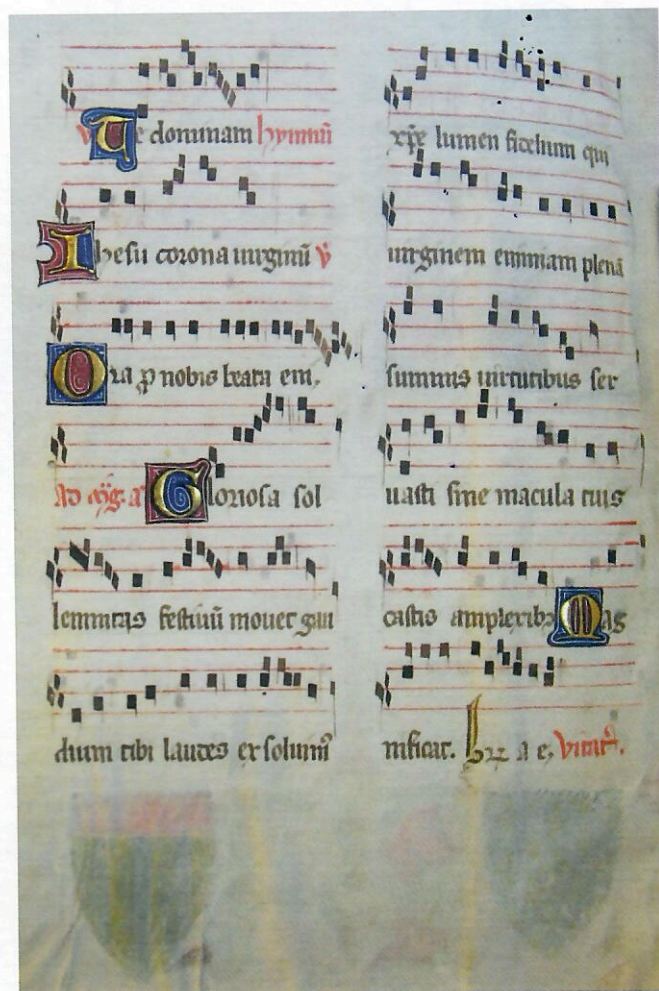 Te dominam hymnū
Ihesu corona uirginū ℣
Ora ꝓ nobis beata em.
Gloriosa sol
lemnitas festiuū mouet gau
dium tibi laudes exsoluim᷒
xp̄e lumen fidelium qui
uirginem eximiam plenā
summis uirtutibus ser
uasti sine macula tuis
castis amplexib᷒ Mag
nificat.